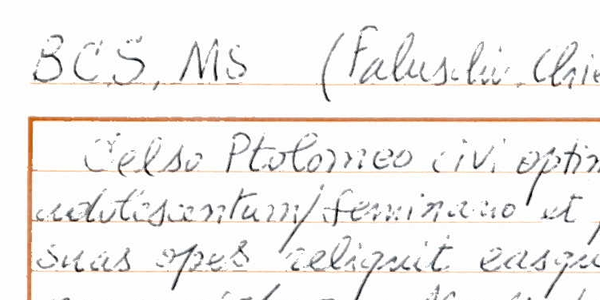 BCS, MS (Faluschi, Chie
Celso Ptolomeo civi optim
adolescentum/seminario et
suas opes reliquit easqu